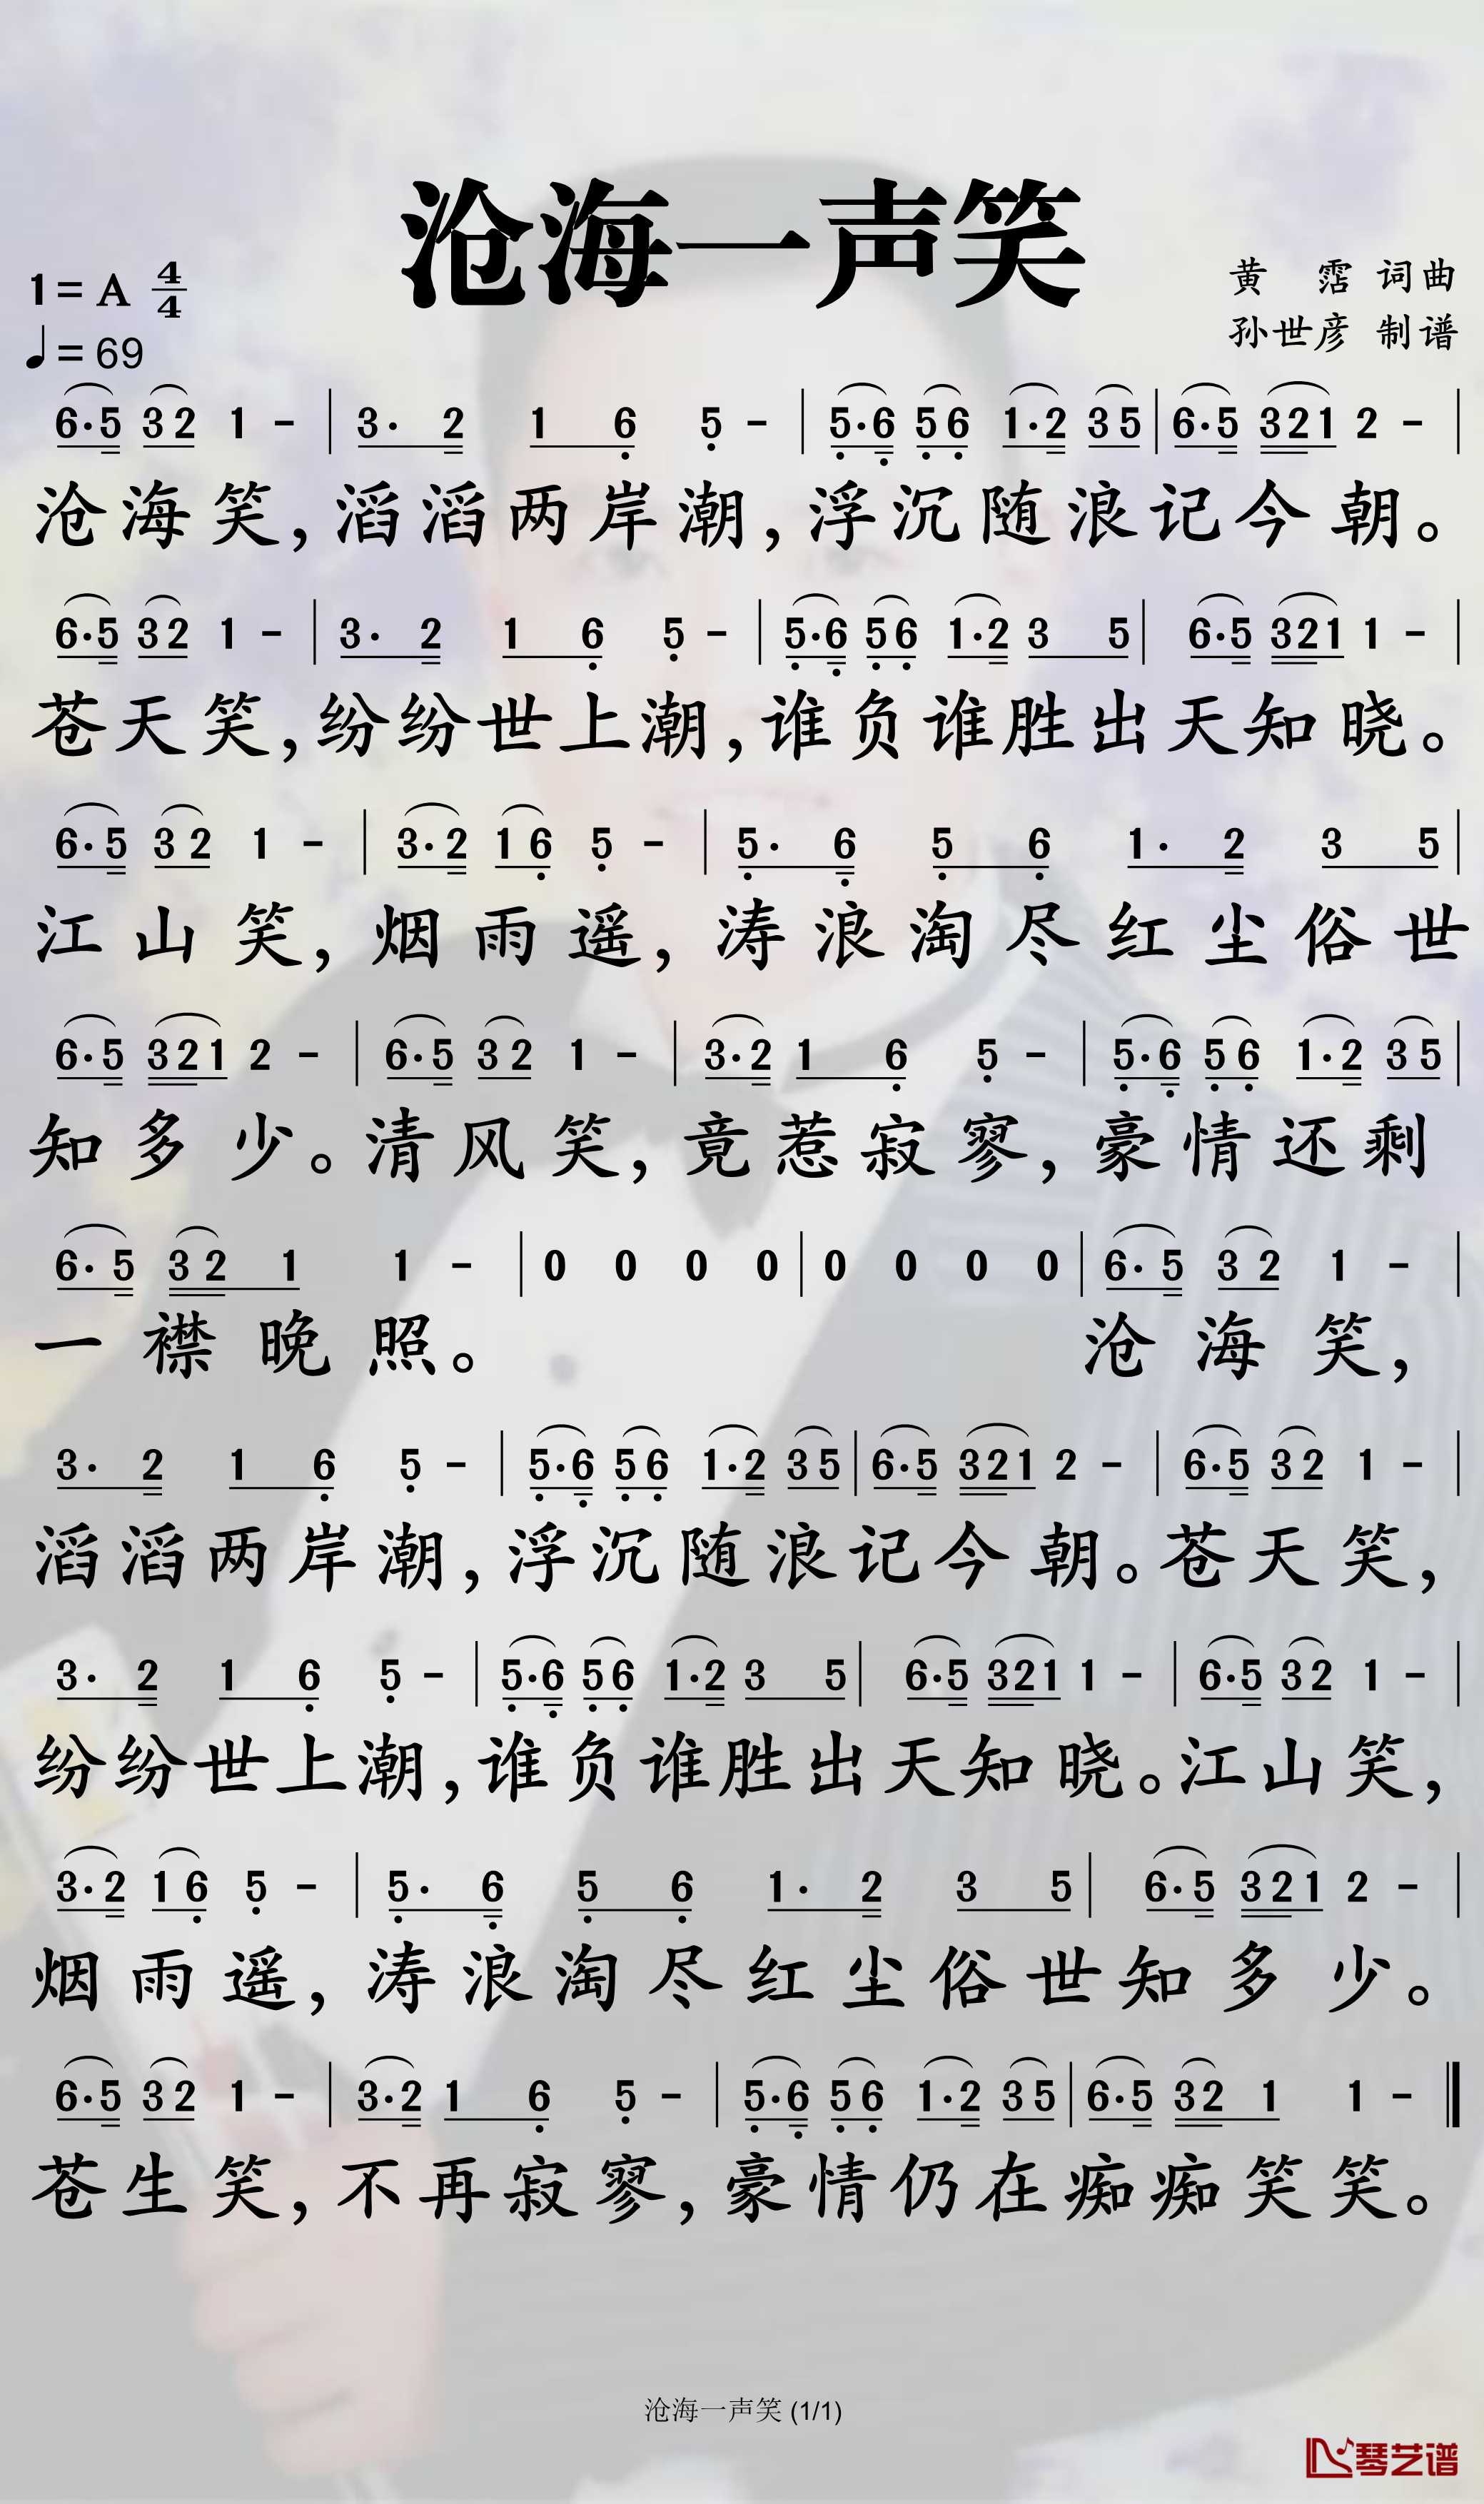 沧海一声笑
1=A 4/4
♩=69
黄 霑 词曲
孙世彦 制谱
6·5 32 1 - | 3· 2 1 6 5 - | 5·6 56 1·2 35 | 6·5 321 2 - |
沧海笑,滔滔两岸潮,浮沉随浪记今朝。
6·5 32 1 - | 3· 2 1 6 5 - | 5·6 56 1·2 3 5 | 6·5 321 1 - |
苍天笑,纷纷世上潮,谁负谁胜出天知晓。
6·5 32 1 - | 3·2 16 5 - | 5· 6 5 6 1· 2 3 5 |
江山笑,烟雨遥,涛浪淘尽红尘俗世
6·5 321 2 - | 6·5 32 1 - | 3·2 1 6 5 - | 5·6 56 1·2 35 |
知多少。清风笑,竟惹寂寥,豪情还剩
6·5 32 1 1 - | 0 0 0 0 | 0 0 0 0 | 6·5 32 1 - |
一襟晚照。 沧海笑,
3· 2 1 6 5 - | 5·6 56 1·2 35 | 6·5 321 2 - | 6·5 32 1 - |
滔滔两岸潮,浮沉随浪记今朝。苍天笑,
3· 2 1 6 5 - | 5·6 56 1·2 3 5 | 6·5 321 1 - | 6·5 32 1 - |
纷纷世上潮,谁负谁胜出天知晓。江山笑,
3·2 16 5 - | 5· 6 5 6 1· 2 3 5 | 6·5 321 2 - |
烟雨遥,涛浪淘尽红尘俗世知多少。
6·5 32 1 - | 3·2 1 6 5 - | 5·6 56 1·2 35 | 6·5 32 1 1 - ‖
苍生笑,不再寂寥,豪情仍在痴痴笑笑。
沧海一声笑 (1/1)
琴艺谱